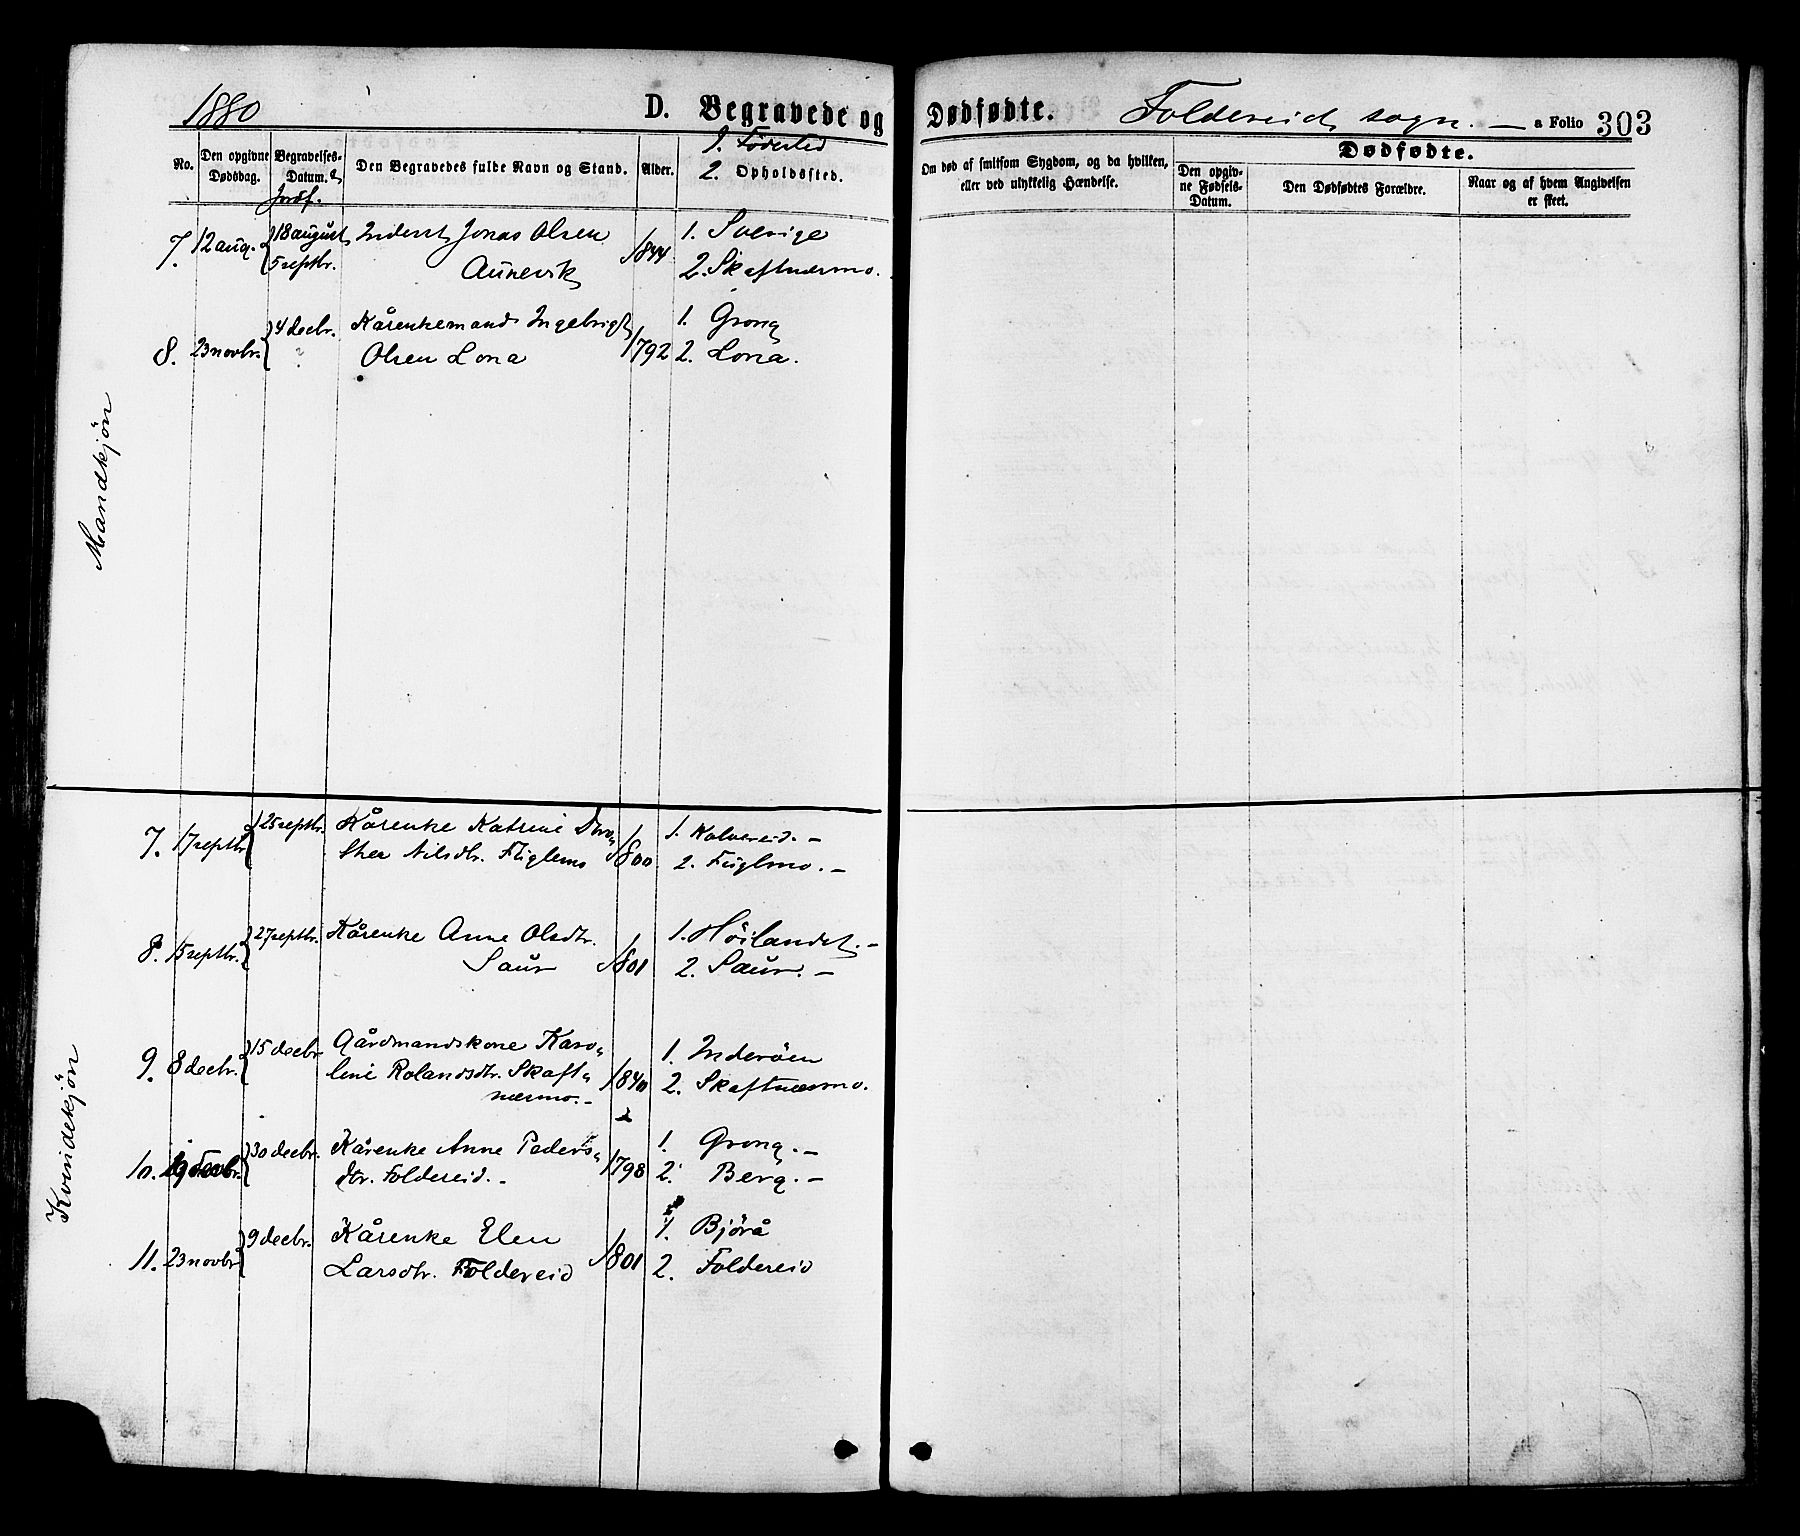 1880 D. Begravede og Dødfødte. Foldereid sogn. — a Folio 303
No.
Den opgivne Dødsdag.
Begravelses-Datum. & Jordf.
Den Begravedes fulde Navn og Stand.
Alder.
1. Födested
2. Opholdssted.
Om død af smitsom Sygdom, og da hvilken, eller ved ulykkelig Hændelse.
Dødfødte.
Den opgivne Fødsels-Datum.
Den Dødfødtes Forældre.
Naar og af hvem Angivelsen er skeet.
Mandkjön
7. 12 aug. 18 august Inderst Jonas Olsen 1844 1. Sverige
5 septbr. Aunevik 2. Skaftnæsmo.
8. 23 novbr. 4 decbr. Kårenkemand Ingebrigt 1792 1. Grong
? Olsen Lona 2. Lona.
Kvindekjön
7. 17 septbr 25 septbr. Kårenke Katrine 1800 1. Kolvereid. —
Nilsdtr. Fuglemo 2. Fuglmo. —
8. 15 septbr. 27 septbr. Kårenke Anne Olsdtr. 1801 1. Höilandet. —
Saur 2. Saur. —
9. 8 decbr. 15 decbr. Gårdmandskone Karo- 1840 1. Inderöen
line Rolandsdtr. Skaft- 2. Skaftnæsmo.
næsmo. —
10. 30 decbr. Kårenke Anne Peders- 1798 1. Grong. —
dtr. Foldereid. - 2. Berg. —
11. 23 novbr 9 decbr. Kårenke Elen 1801 1. Bjórå
Larsdtr. Foldereid 2. Foldereid